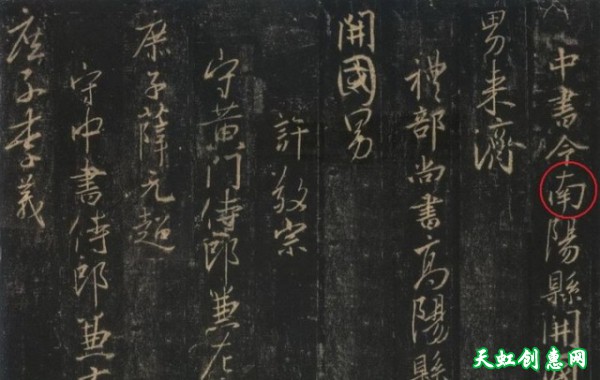 中書令南陽縣開國
男来濟
禮部尚書高陽縣
開國男
許敬宗
守黄門侍郎兼左
庶子薛元超
守中書侍郎兼右
庶子李義
天虹创惠网